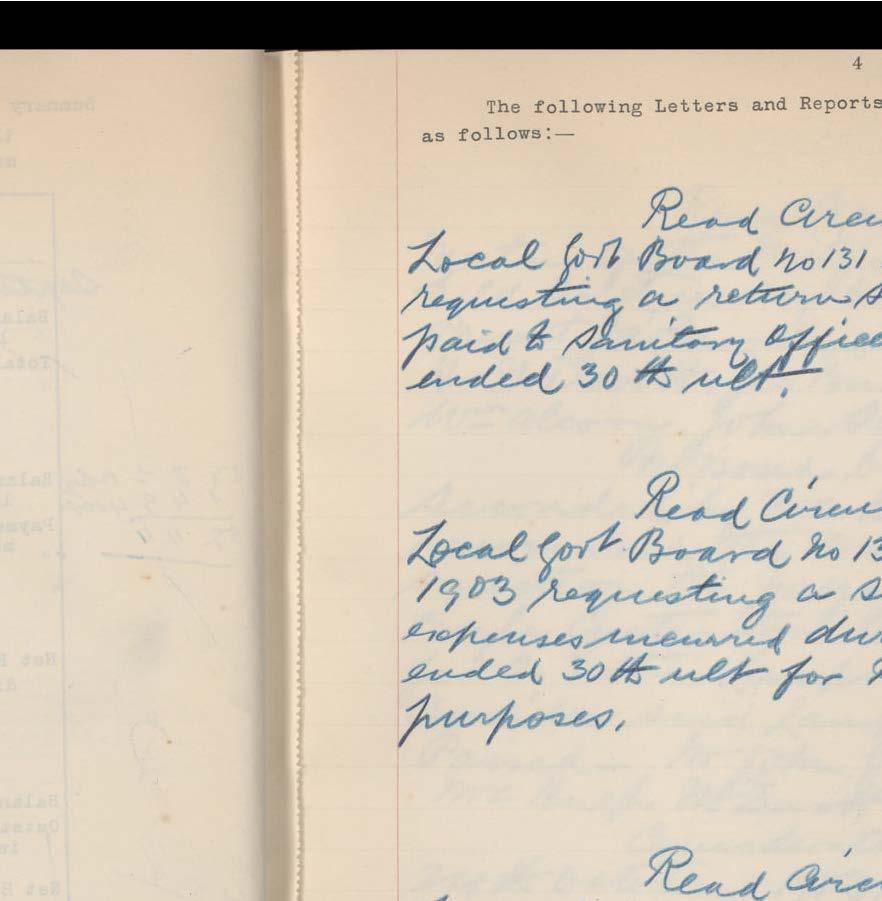 4
The following Letters and Reports
as follows:—
Read Circu
Local Govt Board No 131
requesting a return s
paid to Sanitary Office
ended 30th ult.
Read Circu
Local Govt Board No 13
1903 requesting a s
expenses incurred dur
ended 30th ult for
purposes.
Read Circu